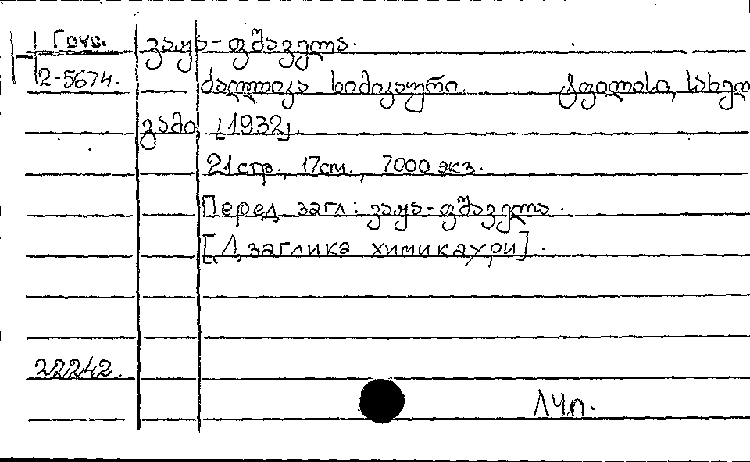 ვაჟა-ფშაველა.
2-5674. ძაღლიკა ხიმიკაური. ტფილისი, სახელ
გამი, [1932].
21 стр., 17 см., 7000 экз.
Перед загл: ვაჟა-ფშაველა.
[Дзаглика химикаури].
22242.